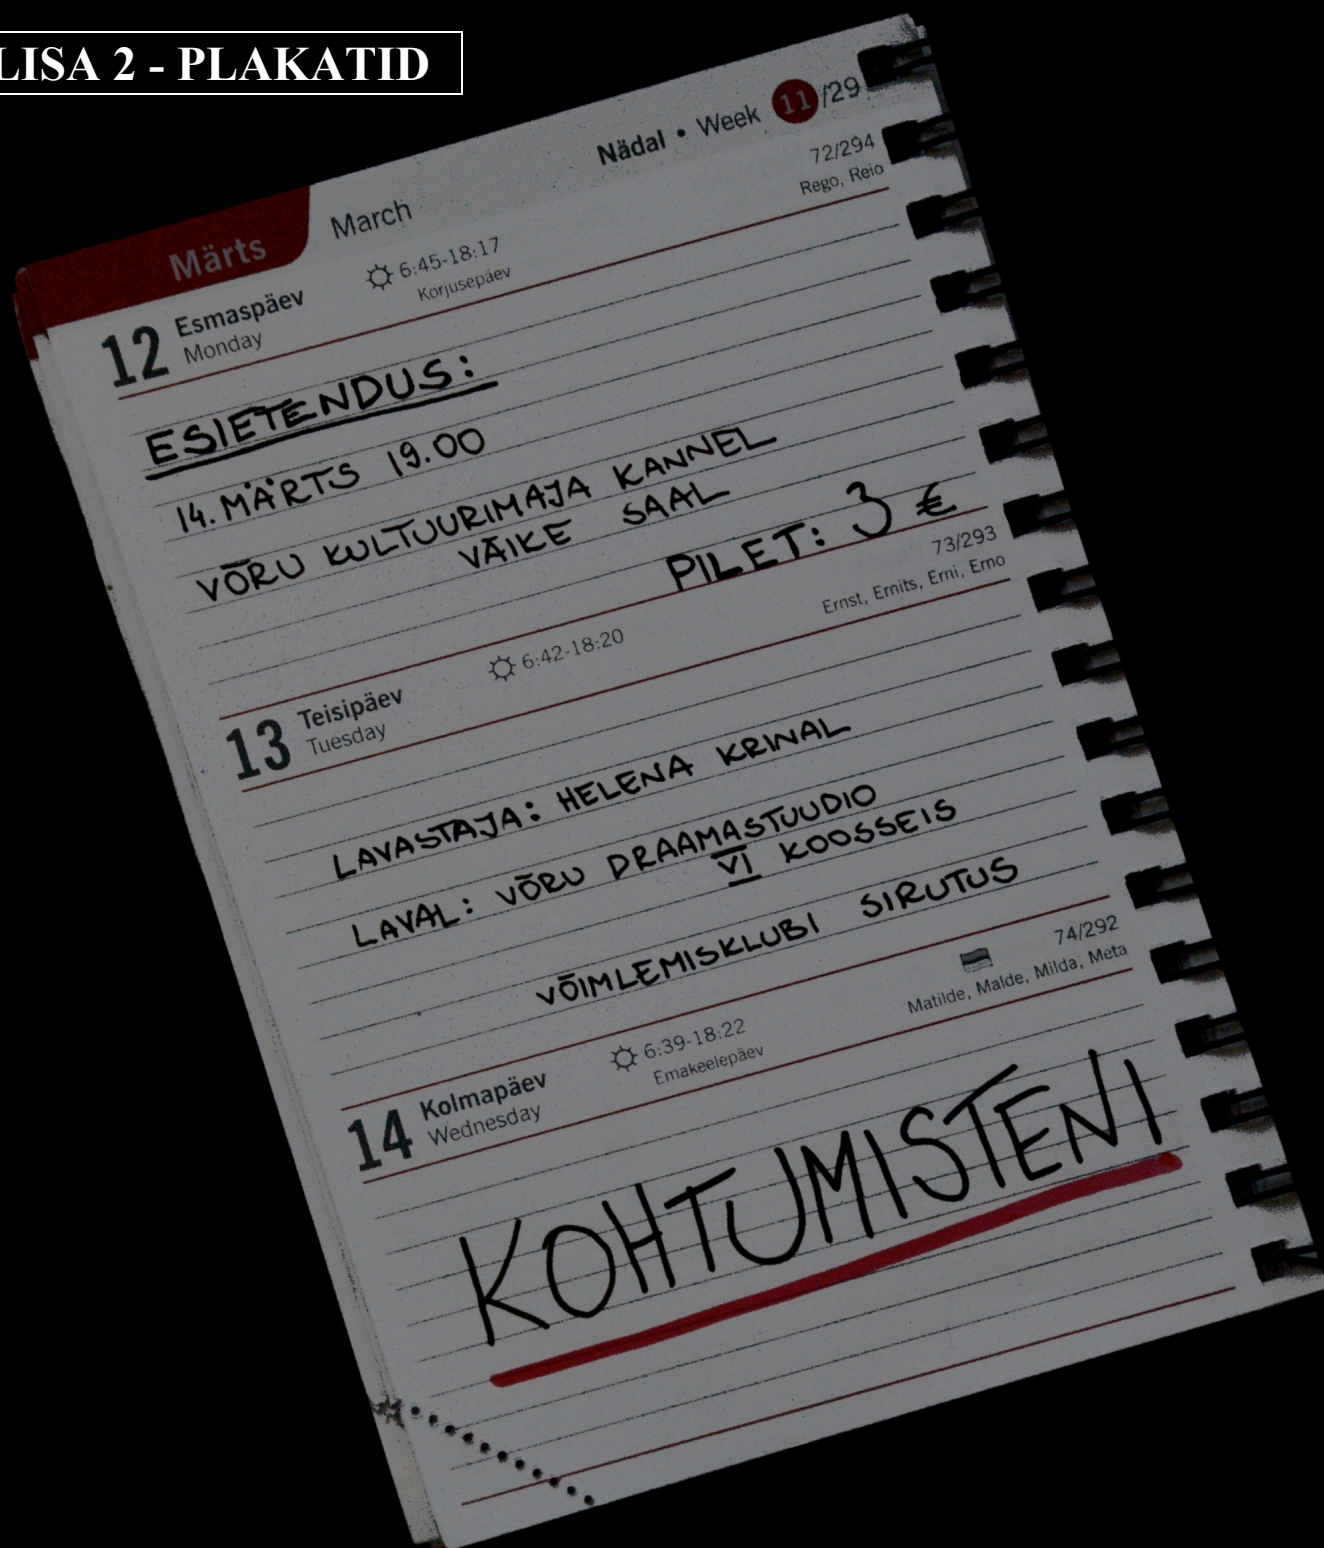 LISA 2 - PLAKATID
Nädal • Week 11/29
72/294
Rego, Reio
Märts March
12 Esmaspäev
Monday
6:45-18:17
Korjusepäev
ESIETENDUS:
14. MÄRTS 19.00
VÕRU KULTUURIMAJA KANNEL
VÄIKE SAAL
PILET: 3 €
73/293
Ernst, Ernits, Erni, Erno
13 Teisipäev
Tuesday
6:42-18:20
LAVASTAJA: HELENA KRINAL
LAVAL: VÕRU DRAAMASTUUDIO
VI KOOSSEIS
VÕIMLEMISKLUBI SIRUTUS
74/292
Matilde, Malde, Milda, Meta
14 Kolmapäev
Wednesday
6:39-18:22
Emakeelepäev
KOHTUMISTENI